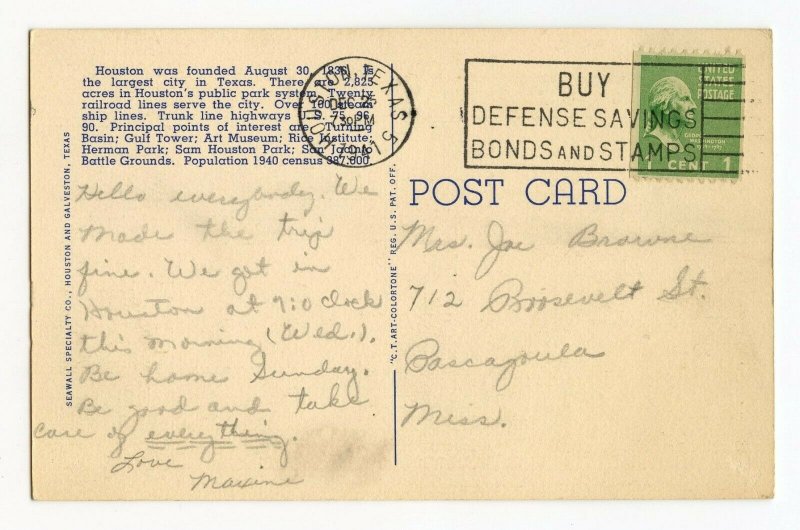 Houston was founded August 30, 1836. Is
the largest city in Texas. There are 2,825
acres in Houston's public park system. Twenty
railroad lines serve the city. Over 100 steam
ship lines. Trunk line highways 59, 75, 96,
90. Principal points of interest are: Turning
Basin; Gulf Tower; Art Museum; Rice Institute;
Herman Park; Sam Houston Park; San Jacinto
Battle Grounds. Population 1940 census 387,000.
HOUSTON, TEXAS 5
DEC
30PM
1941
BUY
DEFENSE SAVINGS
BONDS AND STAMPS
UNITED
STATES
POSTAGE
WASHINGTON
CENT 1
POST CARD
SEAWALL SPECIALTY CO., HOUSTON AND GALVESTON, TEXAS
"C.T. ART-COLORTONE" REG. U.S. PAT. OFF.
Hello everybody. We
made the trip
fine. We got in
Houston at 9:0 clock
this morning (Wed.).
Be home Sunday.
Be good and take
care of everything.
Love
Maxine
Mrs. Joe Browne
712 Roosevelt St.
Pascagoula
Miss.